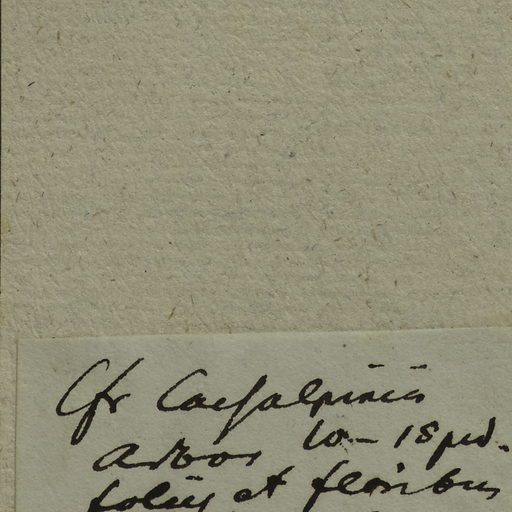 Cfr Caesalpiniis
Arbor 10-18 ped.
foliis et floribus